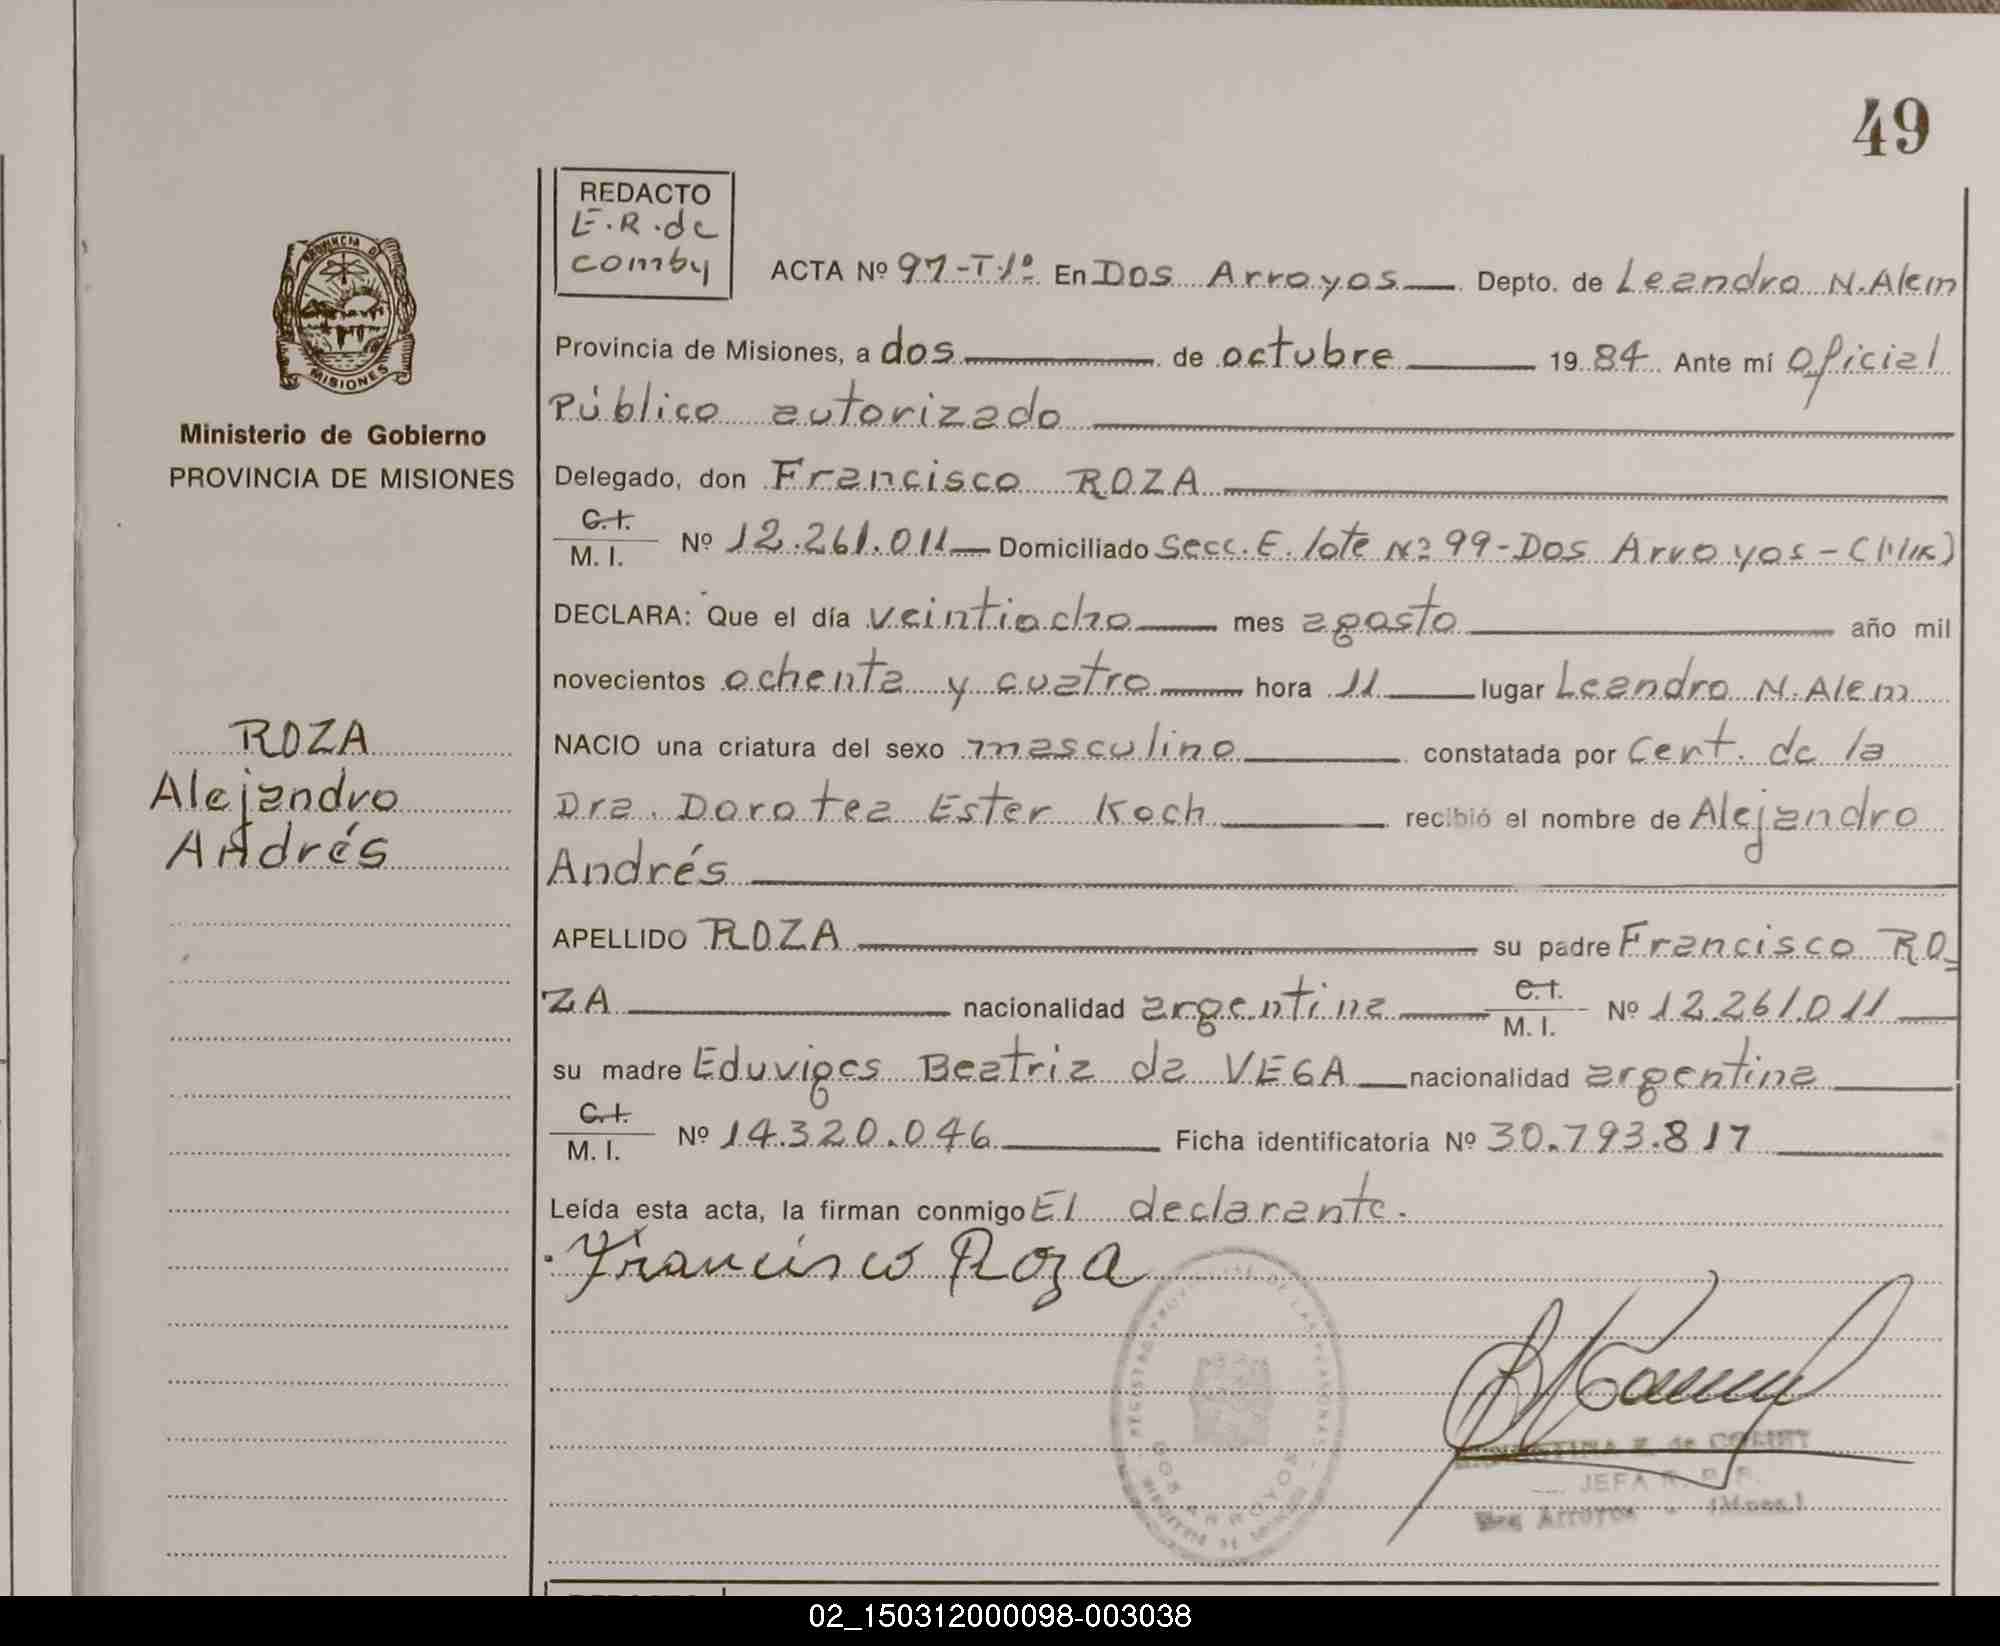 49
REDACTO
E.R. de
comby
ACTA Nº 97-T.1º En Dos Arroyos Depto. de Leandro N. Alem
Provincia de Misiones, a dos de octubre 1984 Ante mí Oficial
Público autorizado
Ministerio de Gobierno
PROVINCIA DE MISIONES
Delegado, don Francisco ROZA
C.I.
M. I. Nº 12.261.011 Domiciliado Secc. E. lote Nº 99-Dos Arroyos-
DECLARA: Que el día veintiocho mes agosto año mil
novecientos ochenta y cuatro hora 11 lugar Leandro N. Alem
ROZA
Alejandro
Andrés
NACIO una criatura del sexo masculino constatada por Cert. de la
Dra. Dorotea Ester Koch recibió el nombre de Alejandro
Andrés
APELLIDO ROZA su padre Francisco RO-
ZA nacionalidad argentina C.I. M. I. Nº 12.261.011
su madre Eduviges Beatriz da VEGA nacionalidad argentina
C.I.
M. I. Nº 14.320.046 Ficha identificatoria Nº 30.793.817
Leída esta acta, la firman conmigo El declarante.
Francisco Roza
DOS ARROYOS
JEFA R. P. P.
Dos Arroyos - (Mnes.)
02_150312000098-003038